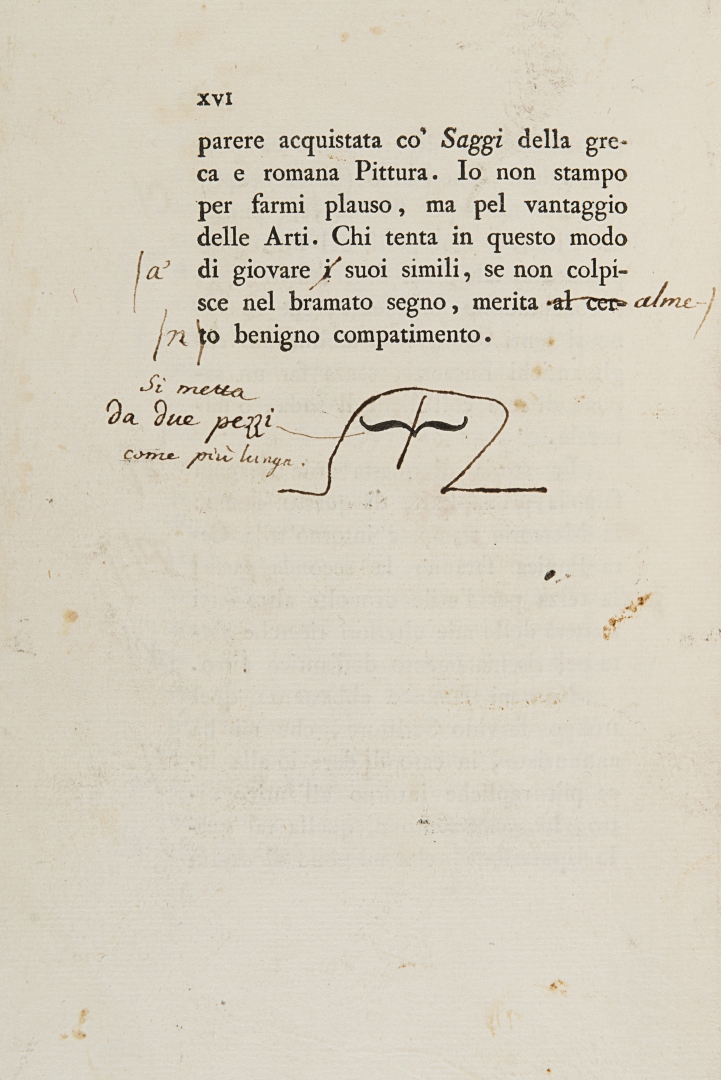 xvi
parere acquistata co' Saggi della gre-
ca e romana Pittura. Io non stampo
per farmi plauso, ma pel vantaggio
delle Arti. Chi tenta in questo modo
a' di giovare i suoi simili, se non colpi-
sce nel bramato segno, merita al cer- alme-
n to benigno compatimento.
Si metta
da due pezzi
come più lunga.